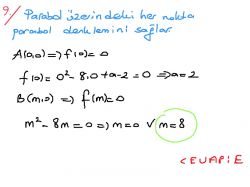 9/ Parabol üzerindeki her nokta
parabol denklemini sağlar.
A(a,0) => f(0)=0
f(0)=0²-8.0+a-2=0 => a=2
B(m,0) => f(m)=0
m²-8m=0 => m=0 ∨ m=8
CEVAP:E